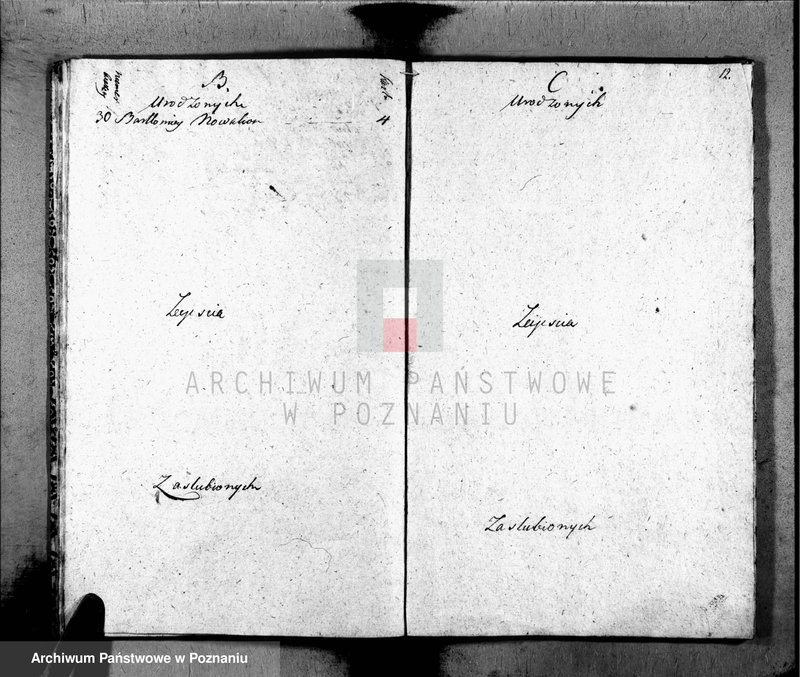 B.
Numer
Urodzonych
30 Bartłomiey Nowakow 4
Zeyscia
Zaslubionych
12.
C.
Urodzonych
Zeyscia
Zaslubionych
ARCHIWUM PAŃSTWOWE
W POZNANIU
Archiwum Państwowe w Poznaniu